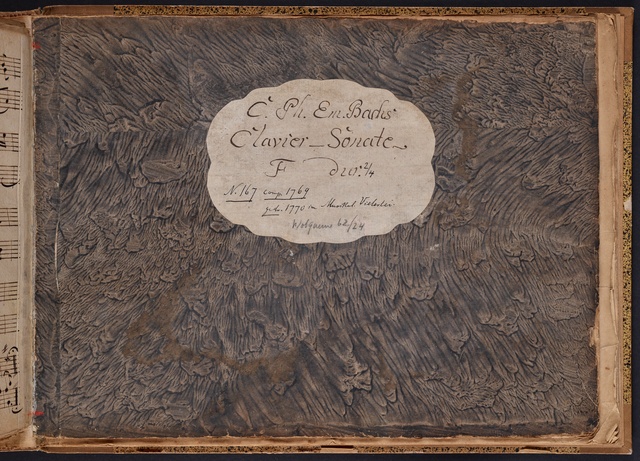 C. Ph. Em. Bachs
Clavier-Sonate
F dur. 2/4
N. 167 comp. 1769
1770 in Musikal. Vielerlei
Wotquenne 62/24